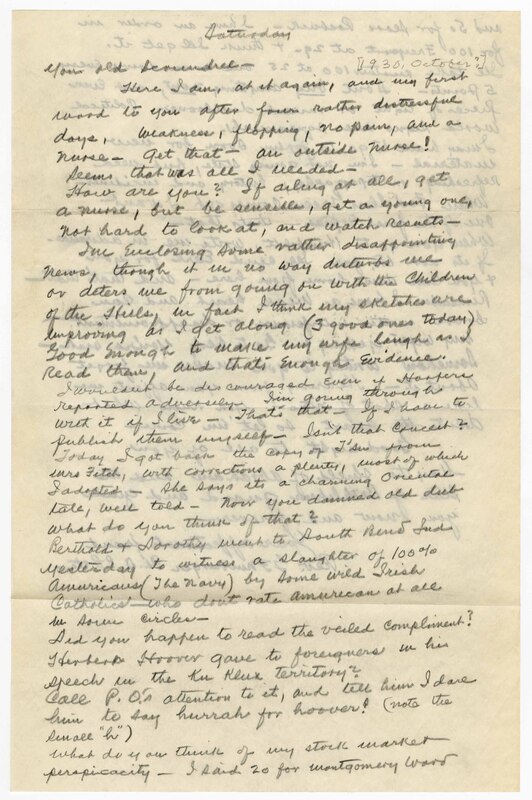 Saturday
[1930, October?]
You old Scoundrel—
Here I am, at it again, and my first
word to you after four rather distressful
days, weakness, flopping, no pain, and a
nurse— Get that— an outside nurse!
Seems that was all I needed—
How are you? If ailing at all, get
a nurse, but be sensible, get a young one,
not hard to look at, and watch results—
I'm enclosing some rather disappointing
news, though it in no way disturbs me
or deters me from going on with the Children
of the Hills, in fact I think my sketches are
improving as I get along (3 good ones today)
Good enough to make my wife laugh as I
read them, and that's enough evidence.
I wouldn't be discouraged even if Harpers
reported adversely. I'm going through
with it if I live— That's that— If I have to
publish them myself— Isn't that conceit?
Today I got back the copy of from
Mrs Fitch, with corrections a plenty, most of which
I adopted— She says its a charming Oriental
tale, well told— Now you damned old dub
what do you think of that?
Berthold & Dorothy went to South Bend Ind
yesterday to witness a slaughter of 100%
Americans (The Navy) by some wild Irish
Catholics— who don't rate American at all
in some circles—
Did you happen to read the veiled compliment?
Herbert Hoover gave to foreigners in his
speech in the Ku Klux territory?
Call P.O.'s attention to it, and tell him I dare
him to say hurrah for hoover! (note the
small "h")
What do you think of my stock market
perspicacity— I said 20 for Montgomery Ward